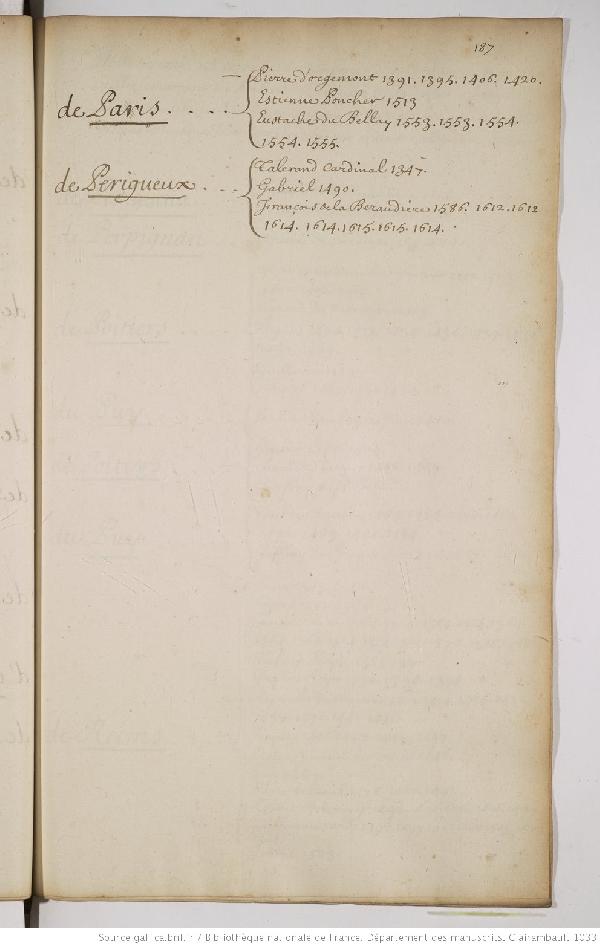 187
Pierre d'orgemont 1391. 1395. 1406. 1420.
de Paris . . . . Estienne Poncher 1513
Eustache du Bellay 1553. 1553. 1554.
1554. 1555.
Talerand Cardinal 1347.
de Perigueux . . . Gabriel 1490.
François de la Beraudiere 1586. 1612. 1612
1614. 1614. 1615. 1615. 1614.
Source gallica.bnf.fr / Bibliothèque nationale de France. Département des manuscrits. Clairambault. 1033